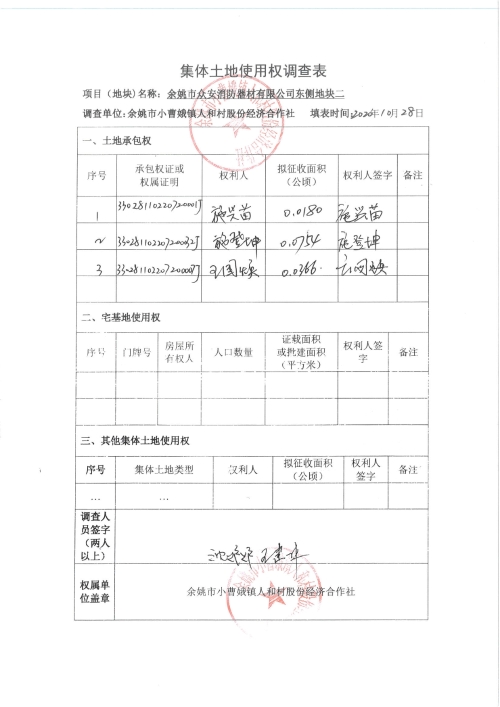 集体土地使用权调查表
项目（地块）名称：余姚市众安消防器材有限公司东侧地块二
调查单位：余姚市小曹娥镇人和村股份经济合作社 填表时间：2020年10月28日
一、土地承包权
序号 承包权证或权属证明 权利人 拟征收面积（公顷） 权利人签字 备注
1 施兴苗 0.0180 施兴苗
2 施登坤 0.0754 施登坤
3 0.0366
二、宅基地使用权
序号 门牌号 房屋所有权人 人口数量 证载面积或批建面积（平方米） 权利人签字 备注
三、其他集体土地使用权
序号 集体土地类型 权利人 拟征收面积（公顷） 权利人签字 备注
... ...
调查人员签字（两人以上）
权属单位盖章 余姚市小曹娥镇人和村股份经济合作社